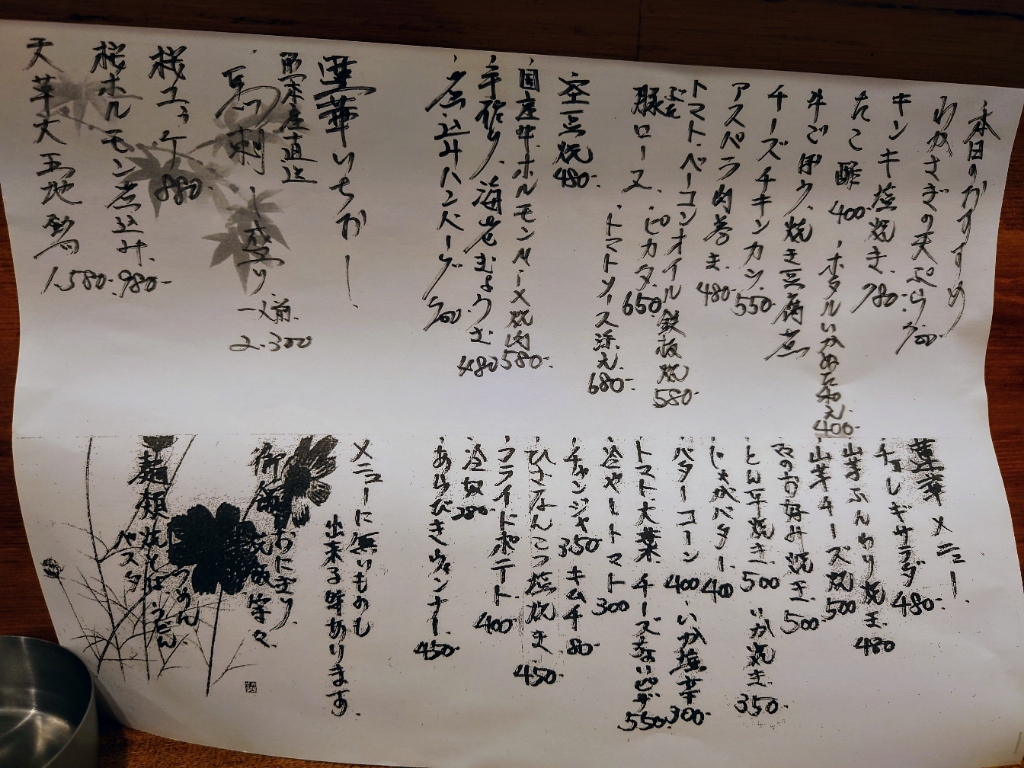 本日のおすすめ
わかさぎの天ぷら 700
キンキ塩焼き 780-
たこ酢 400 ・ホタルいか 400-
牛ごぼう、焼き豆腐煮
チーズチキンカツ 550
アスパラ肉巻き 480-
トマト、ベーコンオイル鉄板焼 580-
豚ロース、ピカタ 650
・トマトソース添え 680-
空豆焼 480-
・国産牛ホルモン 焼肉 580-
・手作り、海老 480
・煮込みハンバーグ 700
蓮華いちおし
熊本産直送
馬刺し盛り 一人前 2,300
桜ユッケ 880
桜ホルモン煮込み 980-
天草大王地鶏 1,580-
蓮華メニュー
チョレギサラダ 480-
山芋ふんわり焼き 480
・山芋チーズ焼 500
・お好み焼き 500
・とん平焼き 500 ・いか焼き 350
・じゃがバター 400
バターコーン 400 ・いか塩辛 300
トマト大葉チーズ 550
・冷やしトマト 300
・チャンジャ 350 ・キムチ
・ひざなんこつ塩焼き 450
フライドポテト 400
冷奴 380
・あらびきウィンナー 450
メニューに無いものも
出来る時あります。
御飯 おにぎり、焼飯 等々
麺類 焼そば うどん
そうめん パスタ